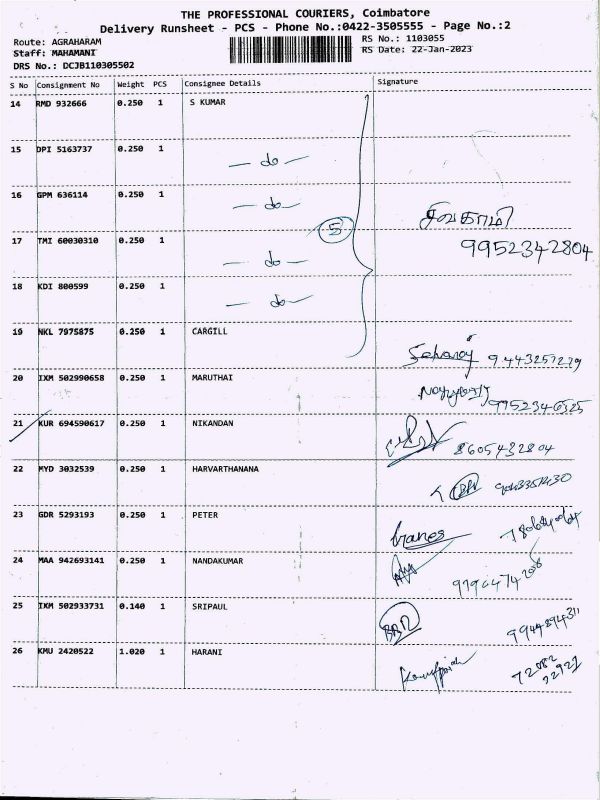 THE PROFESSIONAL COURIERS, Coimbatore
Delivery Runsheet - PCS - Phone No.:0422-3505555 - Page No.:2
Route: AGRAHARAM RS No.: 1103055
Staff: MAHAMANI RS Date: 22-Jan-2023
DRS No.: DCJB110305502
S No Consignment No Weight PCS Consignee Details Signature
14 RMD 932666 0.250 1 S KUMAR
15 DPI 5163737 0.250 1 — do —
16 GPM 636114 0.250 1 — do —
சிவகாமி
5
17 TMI 60030310 0.250 1 — do — 9952342804
18 KDI 800599 0.250 1 — do —
19 NKL 7975875 0.250 1 CARGILL
9443257279
20 IXM 502990658 0.250 1 MARUTHAI
9952346325
21 KUR 694590617 0.250 1 NIKANDAN
8605432804
22 MYD 3032539 0.250 1 HARVARTHANANA
23 GDR 5293193 0.250 1 PETER
24 MAA 942693141 0.250 1 NANDAKUMAR
25 IXM 502933731 0.140 1 SRIPAUL
9944894311
26 KMU 2420522 1.020 1 HARANI
72082
22921